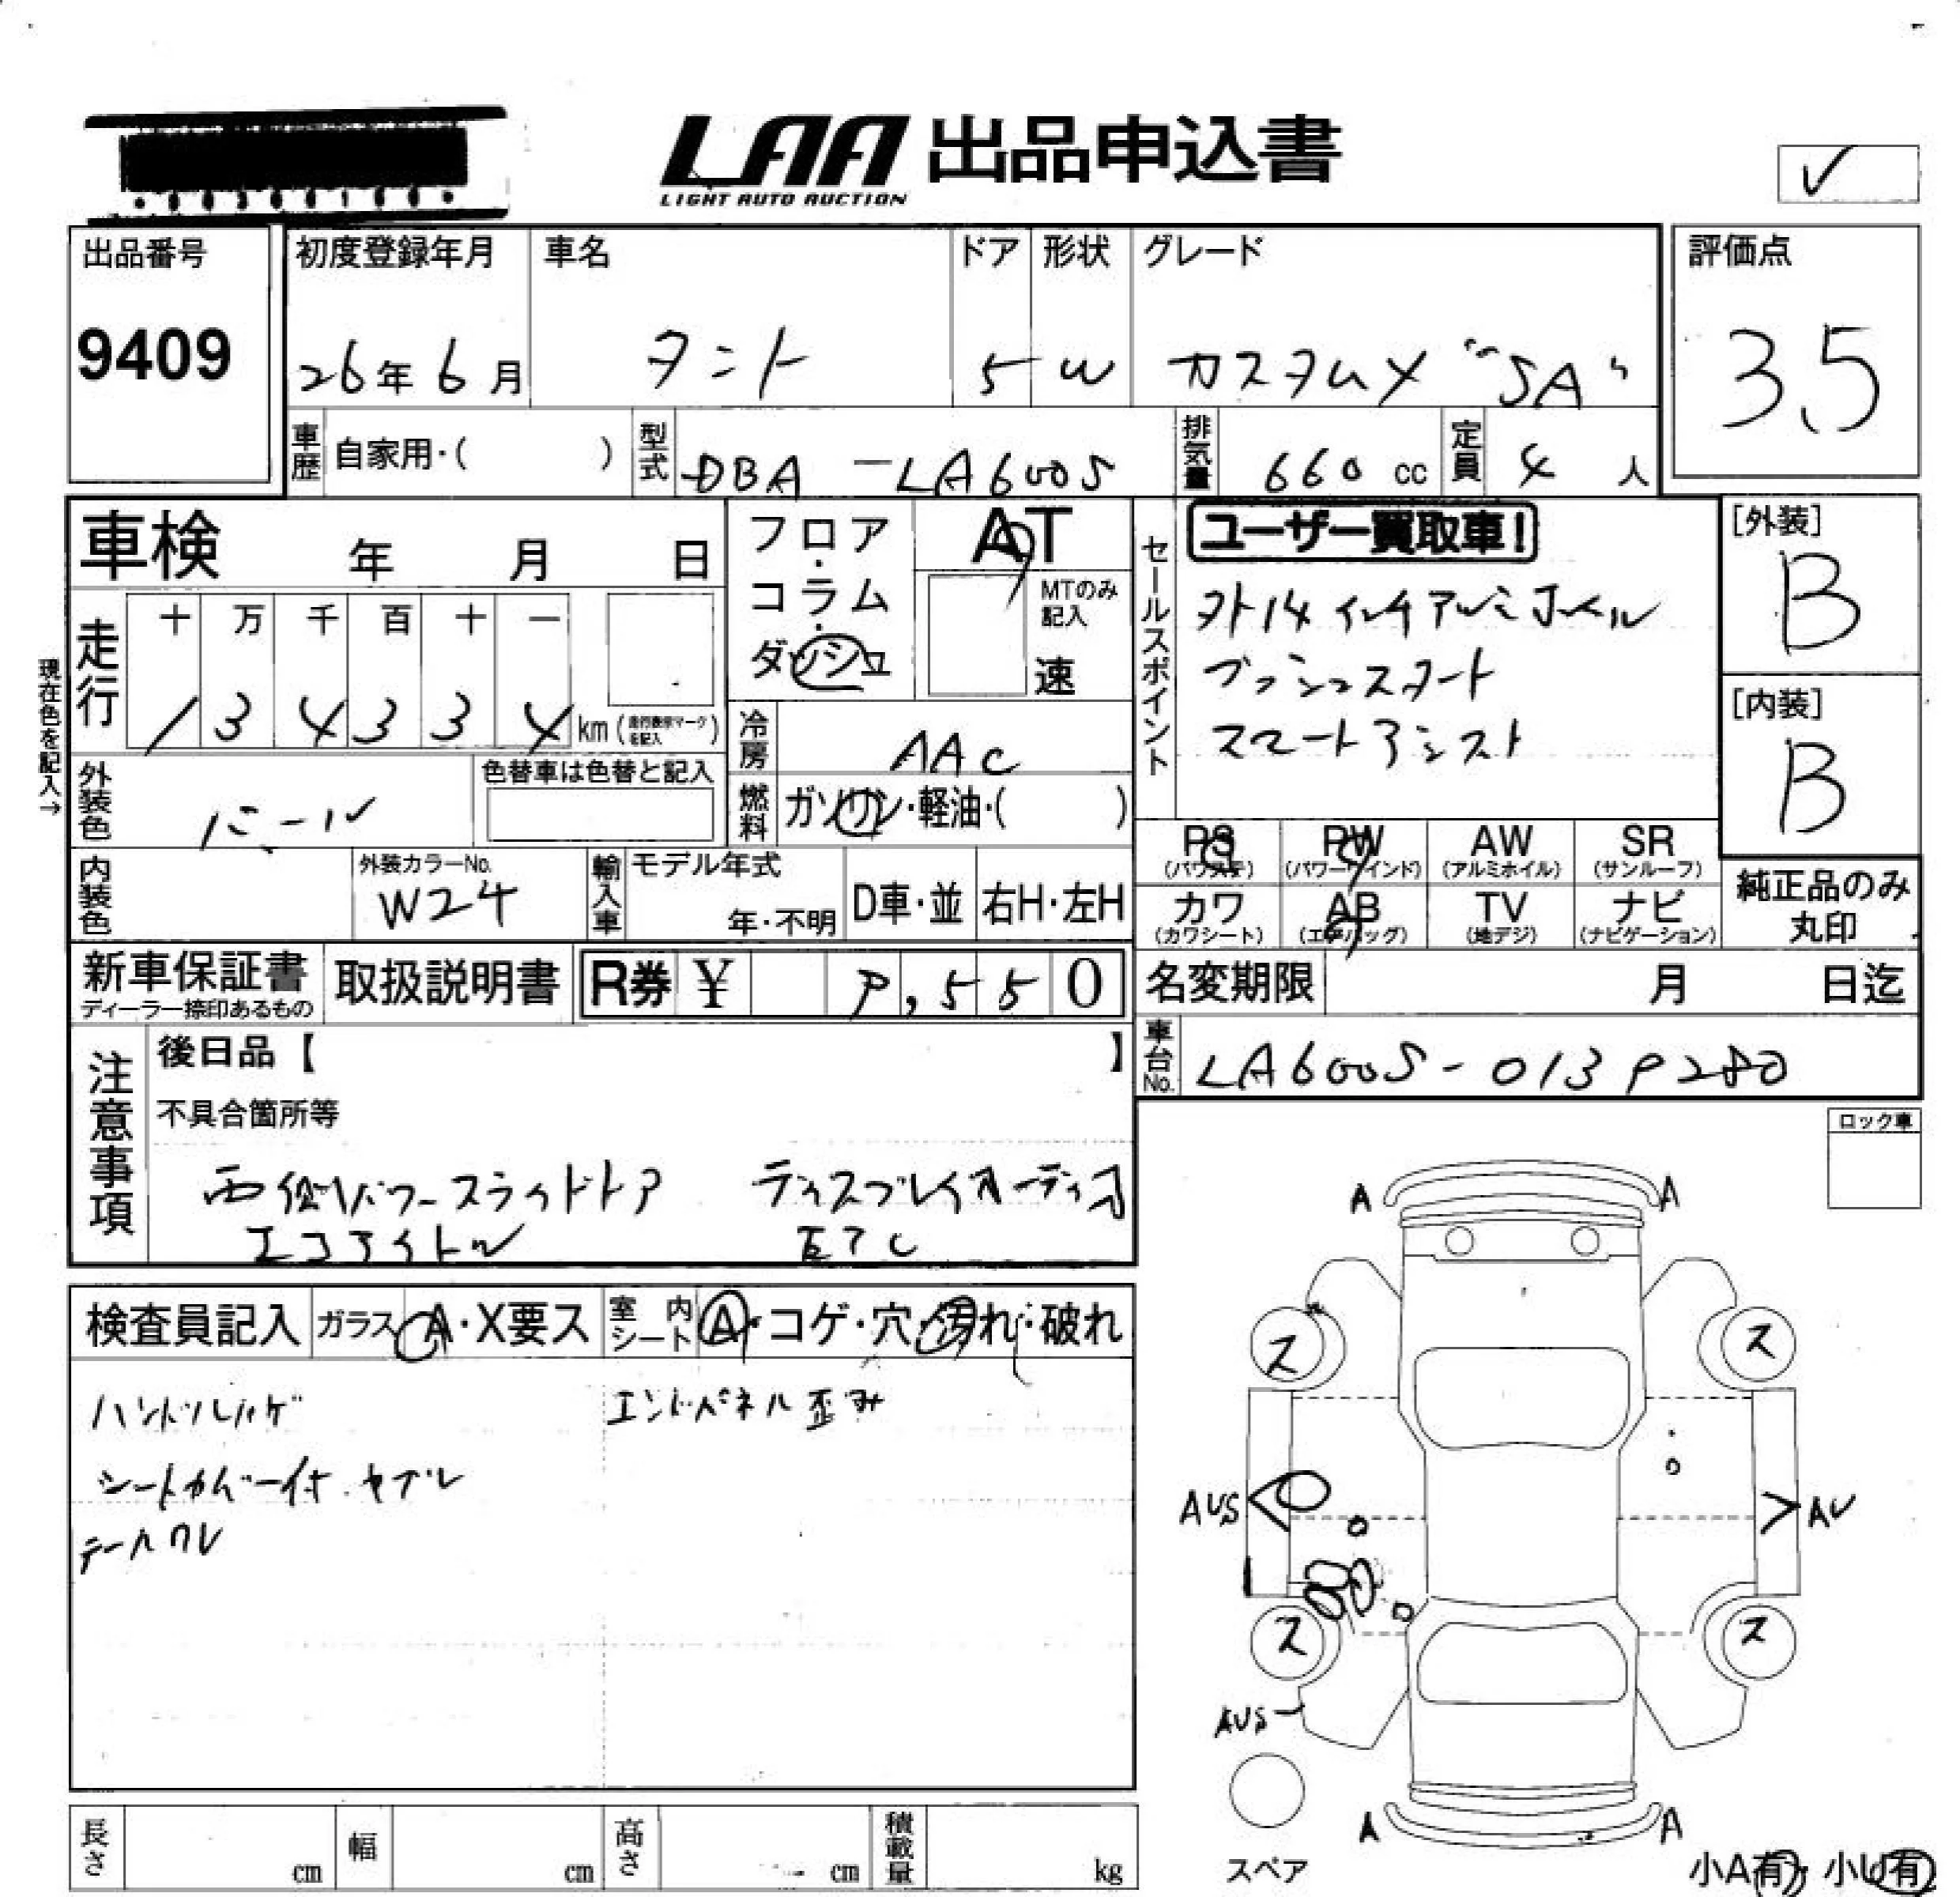 LAA 出品申込書
LIGHT AUTO AUCTION
✓
出品番号
9409
初度登録年月
26年6月
車名
タント
ドア
5
形状
W
グレード
カスタムX "SA"
評価点
3.5
車歴 自家用・( )
型式 DBA-LA600S
排気量 660 cc
定員 4 人
車検 年 月 日
フロア・コラム・ダッシュ
AT
MTのみ記入
速
セールスポイント
ユーザー買取車!
外14インチアルミホイル
プッシュスタート
スマートアシスト
[外装]
B
[内装]
B
現在色を記入→
走行
十 万 千 百 十 一
1 3 4 3 3 4 km (走行表示マークを記入)
冷房 AAC
外装色 パール
色替車は色替と記入
燃料 ガソリン・軽油・( )
内装色
外装カラーNo.
W24
輸入車
モデル年式
年・不明
D車・並
右H・左H
PS
(パワステ)
PW
(パワーウインド)
AW
(アルミホイル)
SR
(サンルーフ)
カワ
(カワシート)
AB
(エアバッグ)
TV
(地デジ)
ナビ
(ナビゲーション)
純正品のみ
丸印
新車保証書
ディーラー捺印あるもの
取扱説明書
R券 ¥ 9,550
名変期限 月 日迄
車台No. LA600S-0139280
注意事項
後日品【 】
不具合箇所等
両側パワースライドドア ディスプレイオーディオ
エコアイドル ETC
ロック車
検査員記入
ガラス A・X要ス
室内シート A・コゲ・穴・汚れ・破れ
ハンドルハゲ
エンドパネル歪み
シートカバー付.ヤブレ
テールワレ
A A
ス ス
AUS AU
ス ス
AUS
A A
スペア
小A有 小U有
長さ cm
幅 cm
高さ cm
積載量 kg